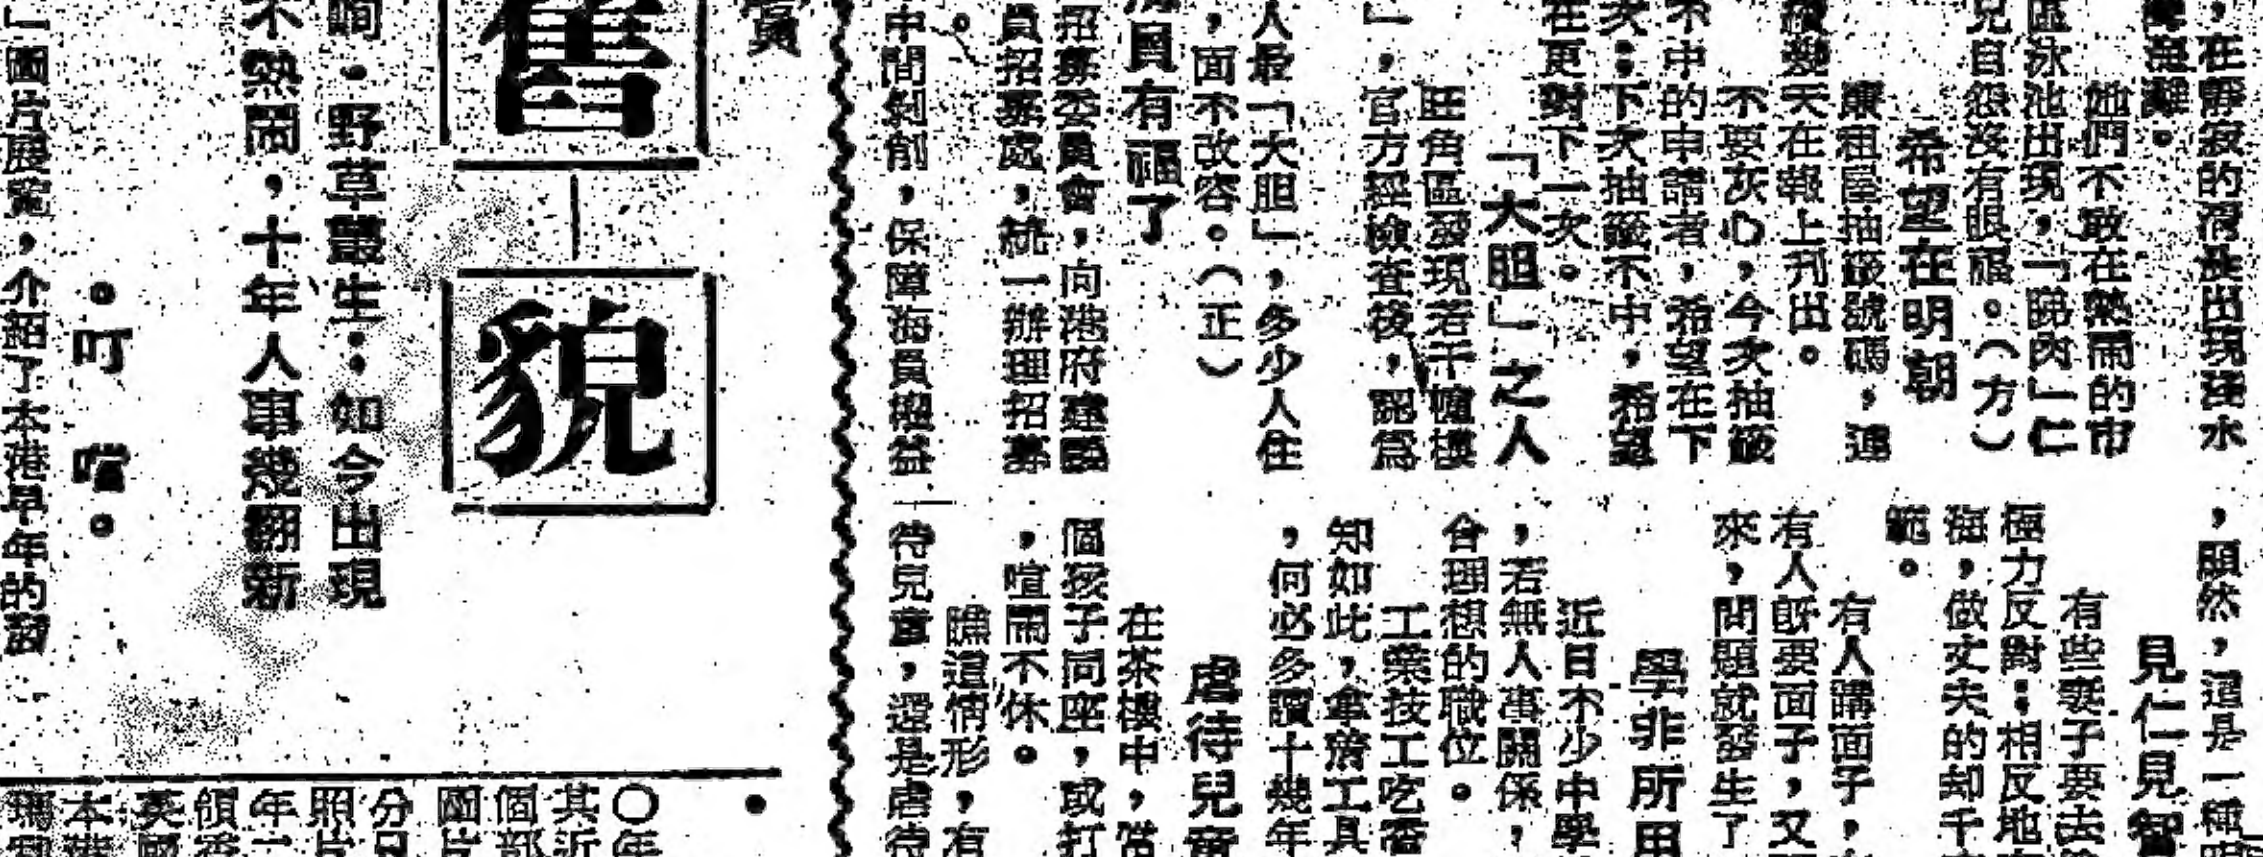 ，在靜寂的
她們不敢在熱鬧的市
區泳池出現，「睇肉」仁
兄自怨沒有眼福。（方）
希望在明朝
廉租屋抽籤號碼，連
續幾天在報上刊出。
不要灰心，今次抽籤
不中的申請者，希望在下
次；下次抽籤不中，希望
在更對下一次。
「大胆」之人
旺角區發現若干幢樓
」，官方經檢查後，認為
人最「大胆」，多少人住
，面不改容。（正）
海員有福了
招募委員會，向港府建議
員招募處，統一辦理招募
。
中間剝削，保障海員權益
，顯然，這是一種
見仁見智
有些妻子要去
極力反對；相反地
，做丈夫的却千
範。
有人講面子，
有人既要面子，又
來，問題就發生了
學非所用
近日不少中學
，若無人事關係，
合理想的職位。
工業技工吃香
知如此，拿齊工具
，何必多讀十幾年
虐待兒童
在茶樓中，當
個孩子同座，或打
，喧鬧不休。
瞧這情形，有
待兒童，還是虐待
舊貌
峋・野草叢生・如今出現
不熱鬧，十年人事幾翻新
。叮噹。
」圖片展覽，介紹了本港早年的
〇年
其近
個部
圖片
分
照片
年一
英國
本港